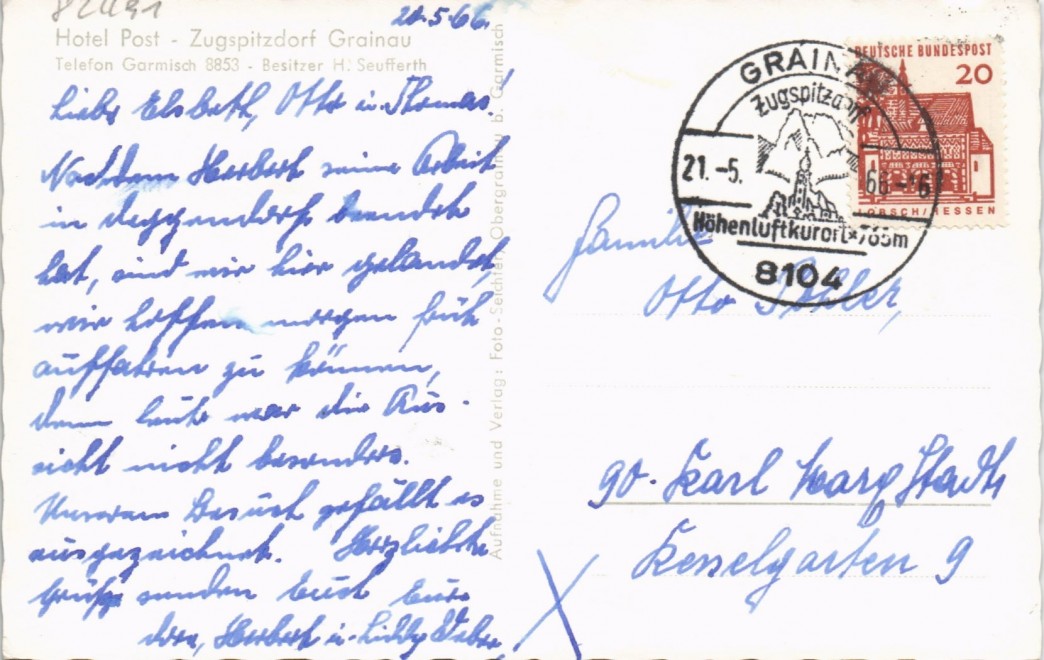 82491
20.5.66.
Hotel Post - Zugspitzdorf Grainau
Telefon Garmisch 8853 - Besitzer H. Seufferth
Liebe Elsbeth, Otto u. Thomas!
Nachdem Herbert seine Arbeit
in Deggendorf beendet
hat, sind wir hier gelandet,
wir hoffen morgen früh
auffahren zu können,
denn heute war die Aus-
sicht nicht besonders.
Unserem Besuch gefällt es
ausgezeichnet. Herzlichste
Grüße senden Euch Eure
Herbert u. Liddy Weber
Aufnahme und Verlag: Foto-Seichter, Obergrainau b. Garmisch
GRAINAU
Zugspitzdorf
21.-5. 66-16
Höhenluftkurort*765m
8104
DEUTSCHE BUNDESPOST
20
LORSCH/HESSEN
Familie
Otto
90. Karl Marx Stadt
Kesselgarten 9